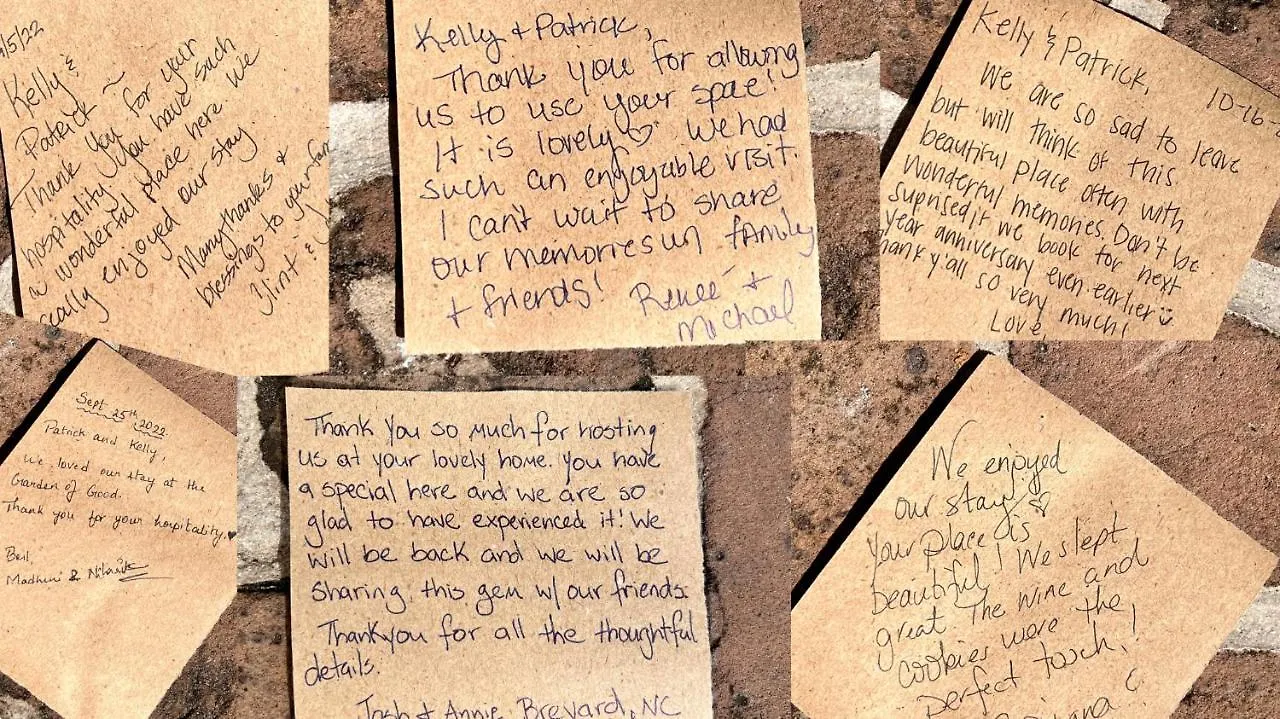 /5/22
Kelly &
Patrick ~
Thank you for your
hospitality. You have such
a wonderful place here. We
really enjoyed our stay
Many thanks &
blessings to your fam
&
Kelly & Patrick,
Thank you for allowing
us to use your space!
It is lovely ♡ We had
such an enjoyable visit.
I can't wait to share
our memories w family
& friends!
Renee &
Michael
Kelly & Patrick,
10-16-
We are so sad to leave
but will think of this
beautiful place often with
wonderful memories. Don't be
suprised if we book for next
year anniversary even earlier
hank y'all so very much!
Love,
Sept 25th 2022
Patrick and Kelly,
We loved our stay at the
Garden of Good.
Thank you for your hospitality. ♥
Best,
Madhuri &
Thank you so much for hosting
us at your lovely home. You have
a special here and we are so
glad to have experienced it! We
will be back and we will be
sharing this gem w/ our friends.
Thankyou for all the thoughtful
details.
Josh & Annie Brevard, NC
We enjoyed
our stay ♡
Your place is
beautiful! We slept
great. The wine and
cookies were the
perfect touch!